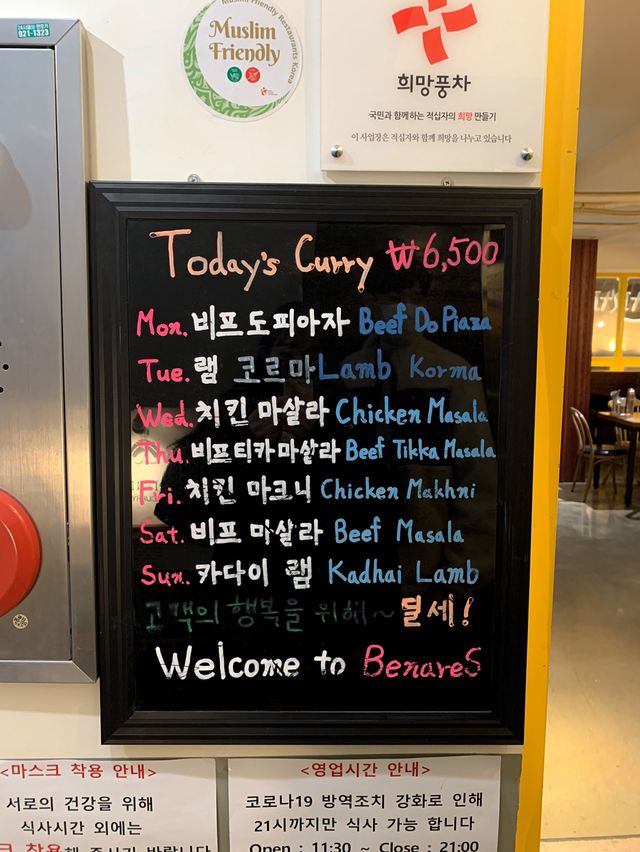 921-1323
Muslim Friendly Restaurants Korea
Muslim
Friendly
희망풍차
국민과 함께하는 적십자의 희망 만들기
이 사업장은 적십자와 함께 희망을 나누고 있습니다
Today's Curry ₩6,500
Mon. 비프도피아자 Beef Do Piaza
Tue. 램 코르마 Lamb Korma
Wed. 치킨 마살라 Chicken Masala
Thu. 비프티카마살라 Beef Tikka Masala
Fri. 치킨 마크니 Chicken Makhni
Sat. 비프 마살라 Beef Masala
Sun. 카다이 램 Kadhai Lamb
고객의 행복을 위해~ 딜세!
Welcome to BenareS
<마스크 착용 안내>
서로의 건강을 위해
식사시간 외에는
<영업시간 안내>
코로나19 방역조치 강화로 인해
21시까지만 식사 가능 합니다
Open : 11:30 ~ Close : 21:00